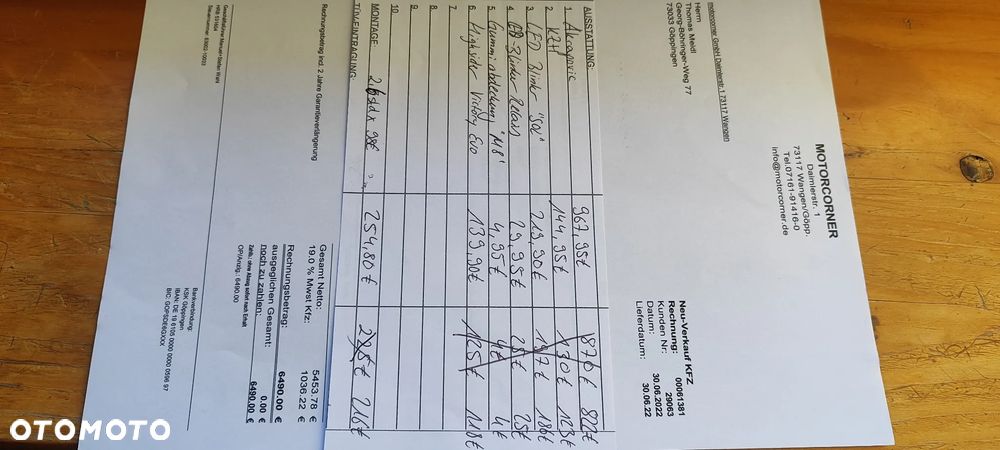 MOTORCORNER
Daimlerstr. 1
73117 Wangen/Göpp.
Tel.07161-91416-0
info@motorcorner.de
motorcorner GmbH Daimlerstr.1 73117 Wangen
Herrn
Thomas Meidl
Georg-Böhringer-Weg 77
73033 Göppingen
Neu-Verkauf KFZ
Rechnung: 00061381
Kunden Nr: 29063
Datum: 30.06.2022
Lieferdatum: 30.06.22
AUSSTATTUNG:
1. Akrapovic 967,95€ 870€ 822€
2. KZH 144,95€ 130€ 123€
3. LED Blinker "SQL" 219,90€ 197€ 186€
4. Blinker Relais 29,95€ 25€
5. Gummiabdeckung "M8" 4,95€ 4€ 4€
6. Highsider Victory Evo 139,90€ 125€ 118€
7.
8.
9.
10.
MONTAGE: 98€ 254,80€ 225€ 216€
TÜV-EINTRAGUNG:
Gesamt Netto: 5453.78 €
19.0 % Mwst Kfz: 1036.22 €
Rechnungsbetrag incl. 2 Jahre Garantieverlängerung
Rechnungsbetrag: 6490.00 €
ausgeglichen Gesamt: 0.00 €
noch zu zahlen: 6490.00 €
Zahlb. ohne Abzug sofort nach Erhalt
OP/Anzlg.: 6490.00
Geschäftsführer Manuel-Stefan Wahl
HRB 531604
Steuernummer: 63003-10033
Bankverbindung:
KSK Göppingen
IBAN: DE 19 6105 0000 0000 0596 97
BIC: GOPSDE6GXXX
OTOMOTO